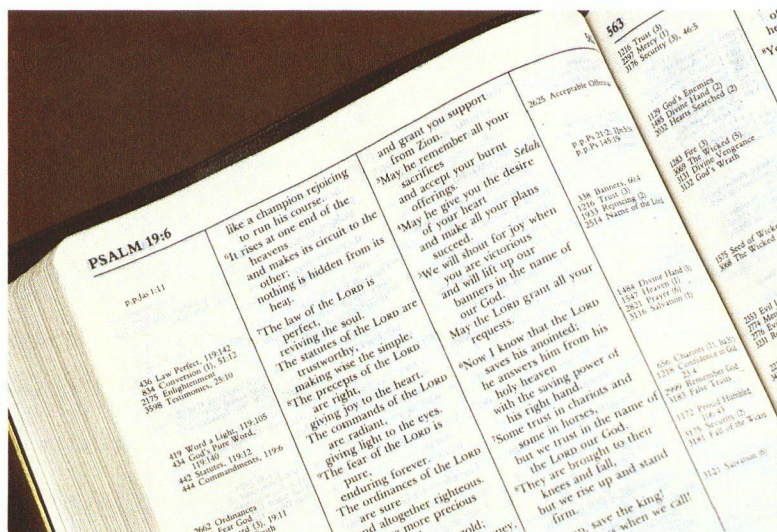 PSALM 19:6
p.p.Jas 1:11
436 Law Perfect, 119:142
834 Conversion (1), 51:12
2175 Enlightenment
3598 Testimonies, 25:10
419 Word a Light, 119:105
434 God's Pure Word,
119:140
442 Statutes, 119:12
444 Commandments, 119:6
2662 Ordinances
Fear God
19:11
like a champion rejoicing
to run his course.
⁶It rises at one end of the
heavens
and makes its circuit to the
other;
nothing is hidden from its
heat.
⁷The law of the LORD is
perfect,
reviving the soul.
The statutes of the LORD are
trustworthy,
making wise the simple.
⁸The precepts of the LORD
are right,
giving joy to the heart.
The commands of the LORD
are radiant,
giving light to the eyes.
⁹The fear of the LORD is
pure,
enduring forever.
The ordinances of the LORD
are sure
and altogether righteous.
more precious
gold;
and grant you support
from Zion.
³May he remember all your
sacrifices
and accept your burnt
offerings. Selah
⁴May he give you the desire
of your heart
and make all your plans
succeed.
⁵We will shout for joy when
you are victorious
and will lift up our
banners in the name of
our God.
May the LORD grant all your
requests.
⁶Now I know that the LORD
saves his anointed;
he answers him from his
holy heaven
with the saving power of
his right hand.
⁷Some trust in chariots and
some in horses,
but we trust in the name of
the LORD our God.
⁸They are brought to their
knees and fall,
but we rise up and stand
firm.
save the king!
when we call!
2625 Acceptable
p.p.Ps 21:2;
p.p.Ps 145:19
338 Banners, 60:4
1216 Trust (3)
1933 Rejoicing (2)
2514 Name of the Lord
1484 Divine Hand (1)
1547 Heaven (1)
2821 Prayer (6)
3116 Salvation (1)
656 Chariots (1),
1218 Confidence in God,
23:4
2999 Remember God
3183 False Trusts
1172 Proud Humbled,
Pr 16:43
3175 Security (2)
3181 Fall of the
3121 Salvation (6)
563
1216 Trust (3)
2297 Mercy (1)
3176 Security (3), 46:5
1129 God's Enemies
1485 Divine Hand (2)
2032 Hearts Searched (2)
1283 Fire (3)
3069 The Wicked (5)
3131 Divine Vengeance
3132 God's Wrath
1575 Seed of
3068 The Wicked